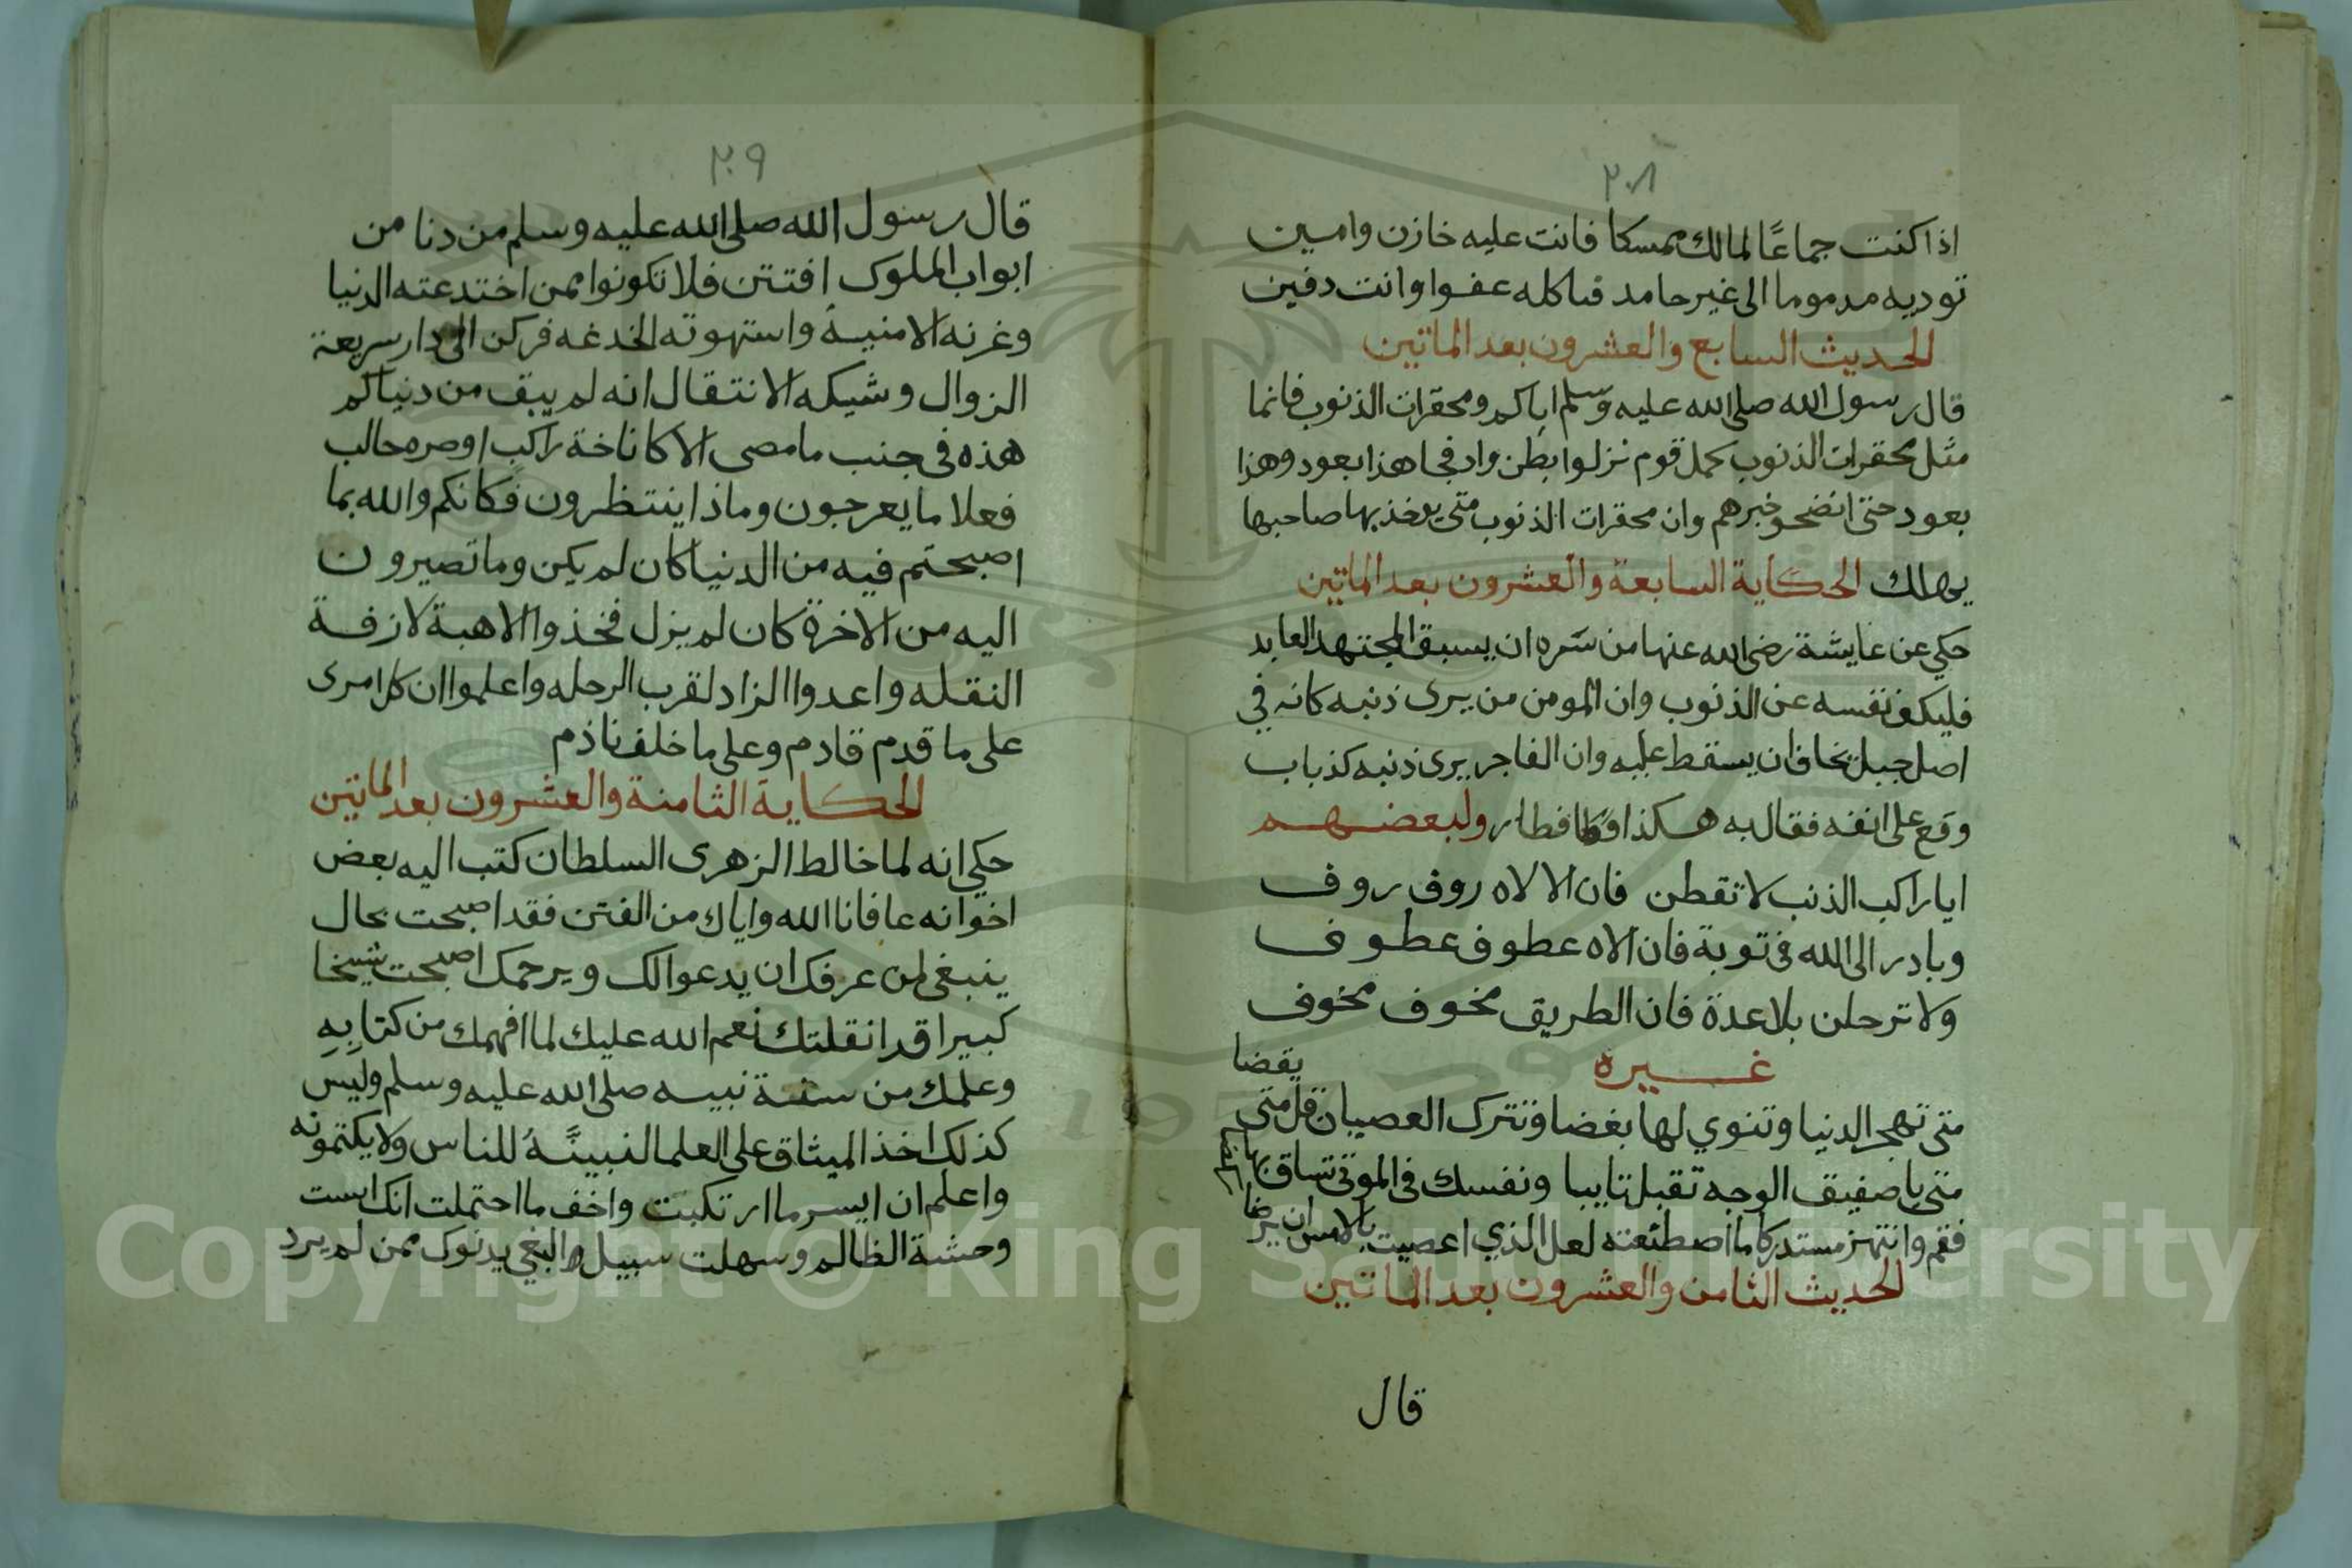 ٢٠٨
اذا كنت جماعًا لمالك ممسكا فانت عليه خازن وامين
توديه مدموما الى غير حامد فياكله عفوا وانت دفين
الحديث السابع والعشرون بعد الماتين
قال رسول الله صلى الله عليه وسلم اياكم ومحقرات الذنوب فانما
مثل محقرات الذنوب كمثل قوم نزلوا بطن واد فجا هذا بعود وهذا
بعود حتى انضجو خبزهم وان محقرات الذنوب متى يوخذ بها صاحبها
يهلك الحكاية السابعة والعشرون بعد الماتين
حكي عن عايشة رضى الله عنها من سره ان يسبق المجتهد العابد
فليكف نفسه عن الذنوب وان المومن من يرى ذنبه كانه في
اصل جبل يخاف ان يسقط عليه وان الفاجر يرى ذنبه كذباب
وقع على انفه فقال به هكذا فطار ولبعضهم
ايا راكب الذنب لا تقطن فان الالاه روف روف
وبادر الى الله فى توبة فان الاه عطوف عطوف
ولا ترحلن بلا عدة فان الطريق مخوف مخوف
غيره
متى تهجر الدنيا وتنوي لها بغضا وتترك العصيان قل متى يقضا
متى يا صفيق الوجه تقبل تايبا ونفسك فى الموتى تساق بها
فقم وانتهز مستدركا ما اصطنعته لعل الذي اعصيت بالامس ان يرضا
الحديث الثامن والعشرون بعد الماتين
قال
٢٠٩
قال رسول الله صلى الله عليه وسلم من دنا من
ابواب الملوك افتتن فلا تكونوا ممن اختدعته الدنيا
وغرته الامنية واستهوته الخدغه فركن الى دار سريعة
الزوال وشيكه الانتقال انه لم يبق من دنياكم
هذه فى جنب ما مصى الا كاناخة راكب اوصره حالب
فعلا ما يعرجون وماذا ينتظرون فكانكم والله بما
اصبحتم فيه من الدنيا كان لم يكن وما تصيرون
اليه من الاخرة كان لم يزل فخذوا الاهبة لازفة
النقله واعدوا الزاد لقرب الرحله واعلموا ان كل امرى
على ما قدم قادم وعلى ما خلف ناذم
الحكاية الثامنة والعشرون بعد الماتين
حكي انه لما خالط الزهرى السلطان كتب اليه بعض
اخوانه عافانا الله واياك من الفتن فقد اصبحت بحال
ينبغى لمن عرفك ان يدعوا لك ويرحمك اصبحت شيخا
كبيرا قد انقلتك نعم الله عليك لما افهمك من كتابِهِ
وعلمك من سنة نبيه صلى الله عليه وسلم وليس
كذلك اخذ الميثاق على العلما لتبيننه للناس ولا يكتمونه
واعلم ان ايسر ما ارتكبت واخف ما احتملت انك انست
وحشة الظالم وسهلت سبيل البغي بدنوك ممن لم يرد